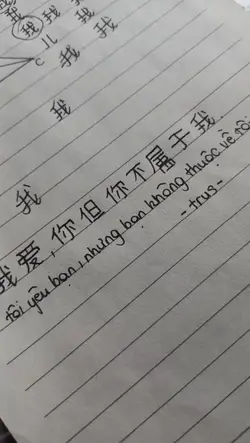 我 我 我
我 我 我
C 儿 我 我
我
我
我爱,你但你不属于我
tôi yêu bạn, nhưng bạn không thuộc về tôi
-trus-